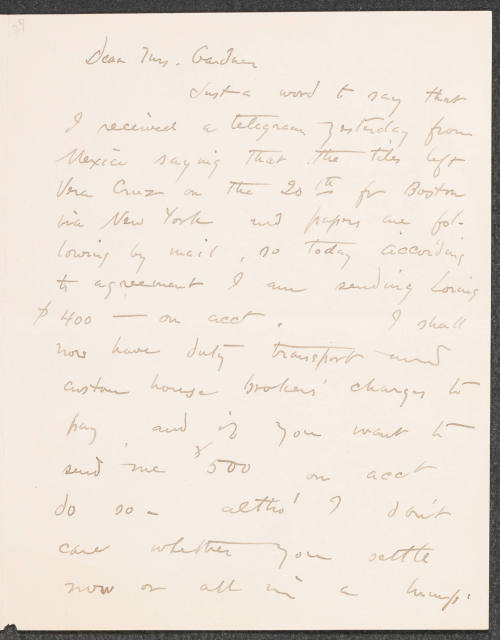 Dear Mrs. Gardner
Just a word to say that
I received a telegram yesterday from
Mexico saying that the tiles left
Vera Cruz on the 20th for Boston
via New York and papers are fol-
lowing by mail, so today according
to agreement I am sending Loring
$400 — on acct. I shall
now have duty transport and
custom house brokers' charges to
pay, and if you want to
send me $500 on acct
do so — altho' I don't
care whether you settle
now or all in a lump.